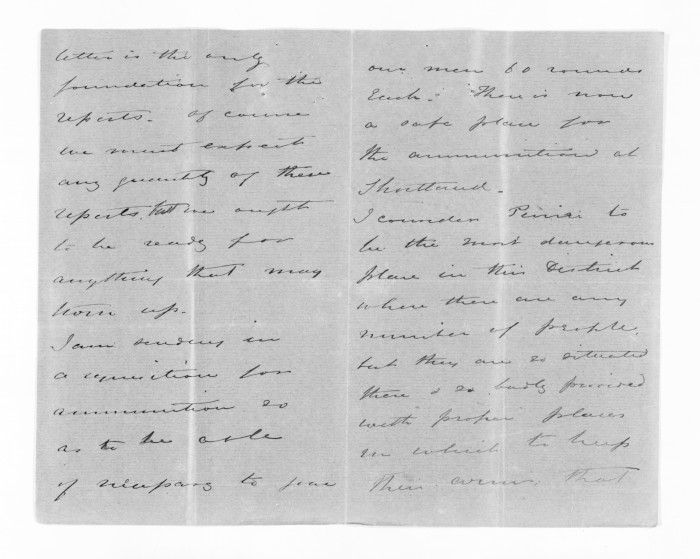 letter is the only
foundation for the
reports. Of course
we must expect
any quantity of these
reports, but we ought
to be ready for
anything that may
turn up.
I am sending in
a requisition for
ammunition so
as to be able
if necessary to give
our men 60 rounds
Each. There is now
a safe place for
the ammunition at
Shortland.
I consider Piniai to
be the most dangerous
place in this District
where there are any
number of people,
but they are so situated
there & so badly provided
with proper places
in which to keep
their arms, that